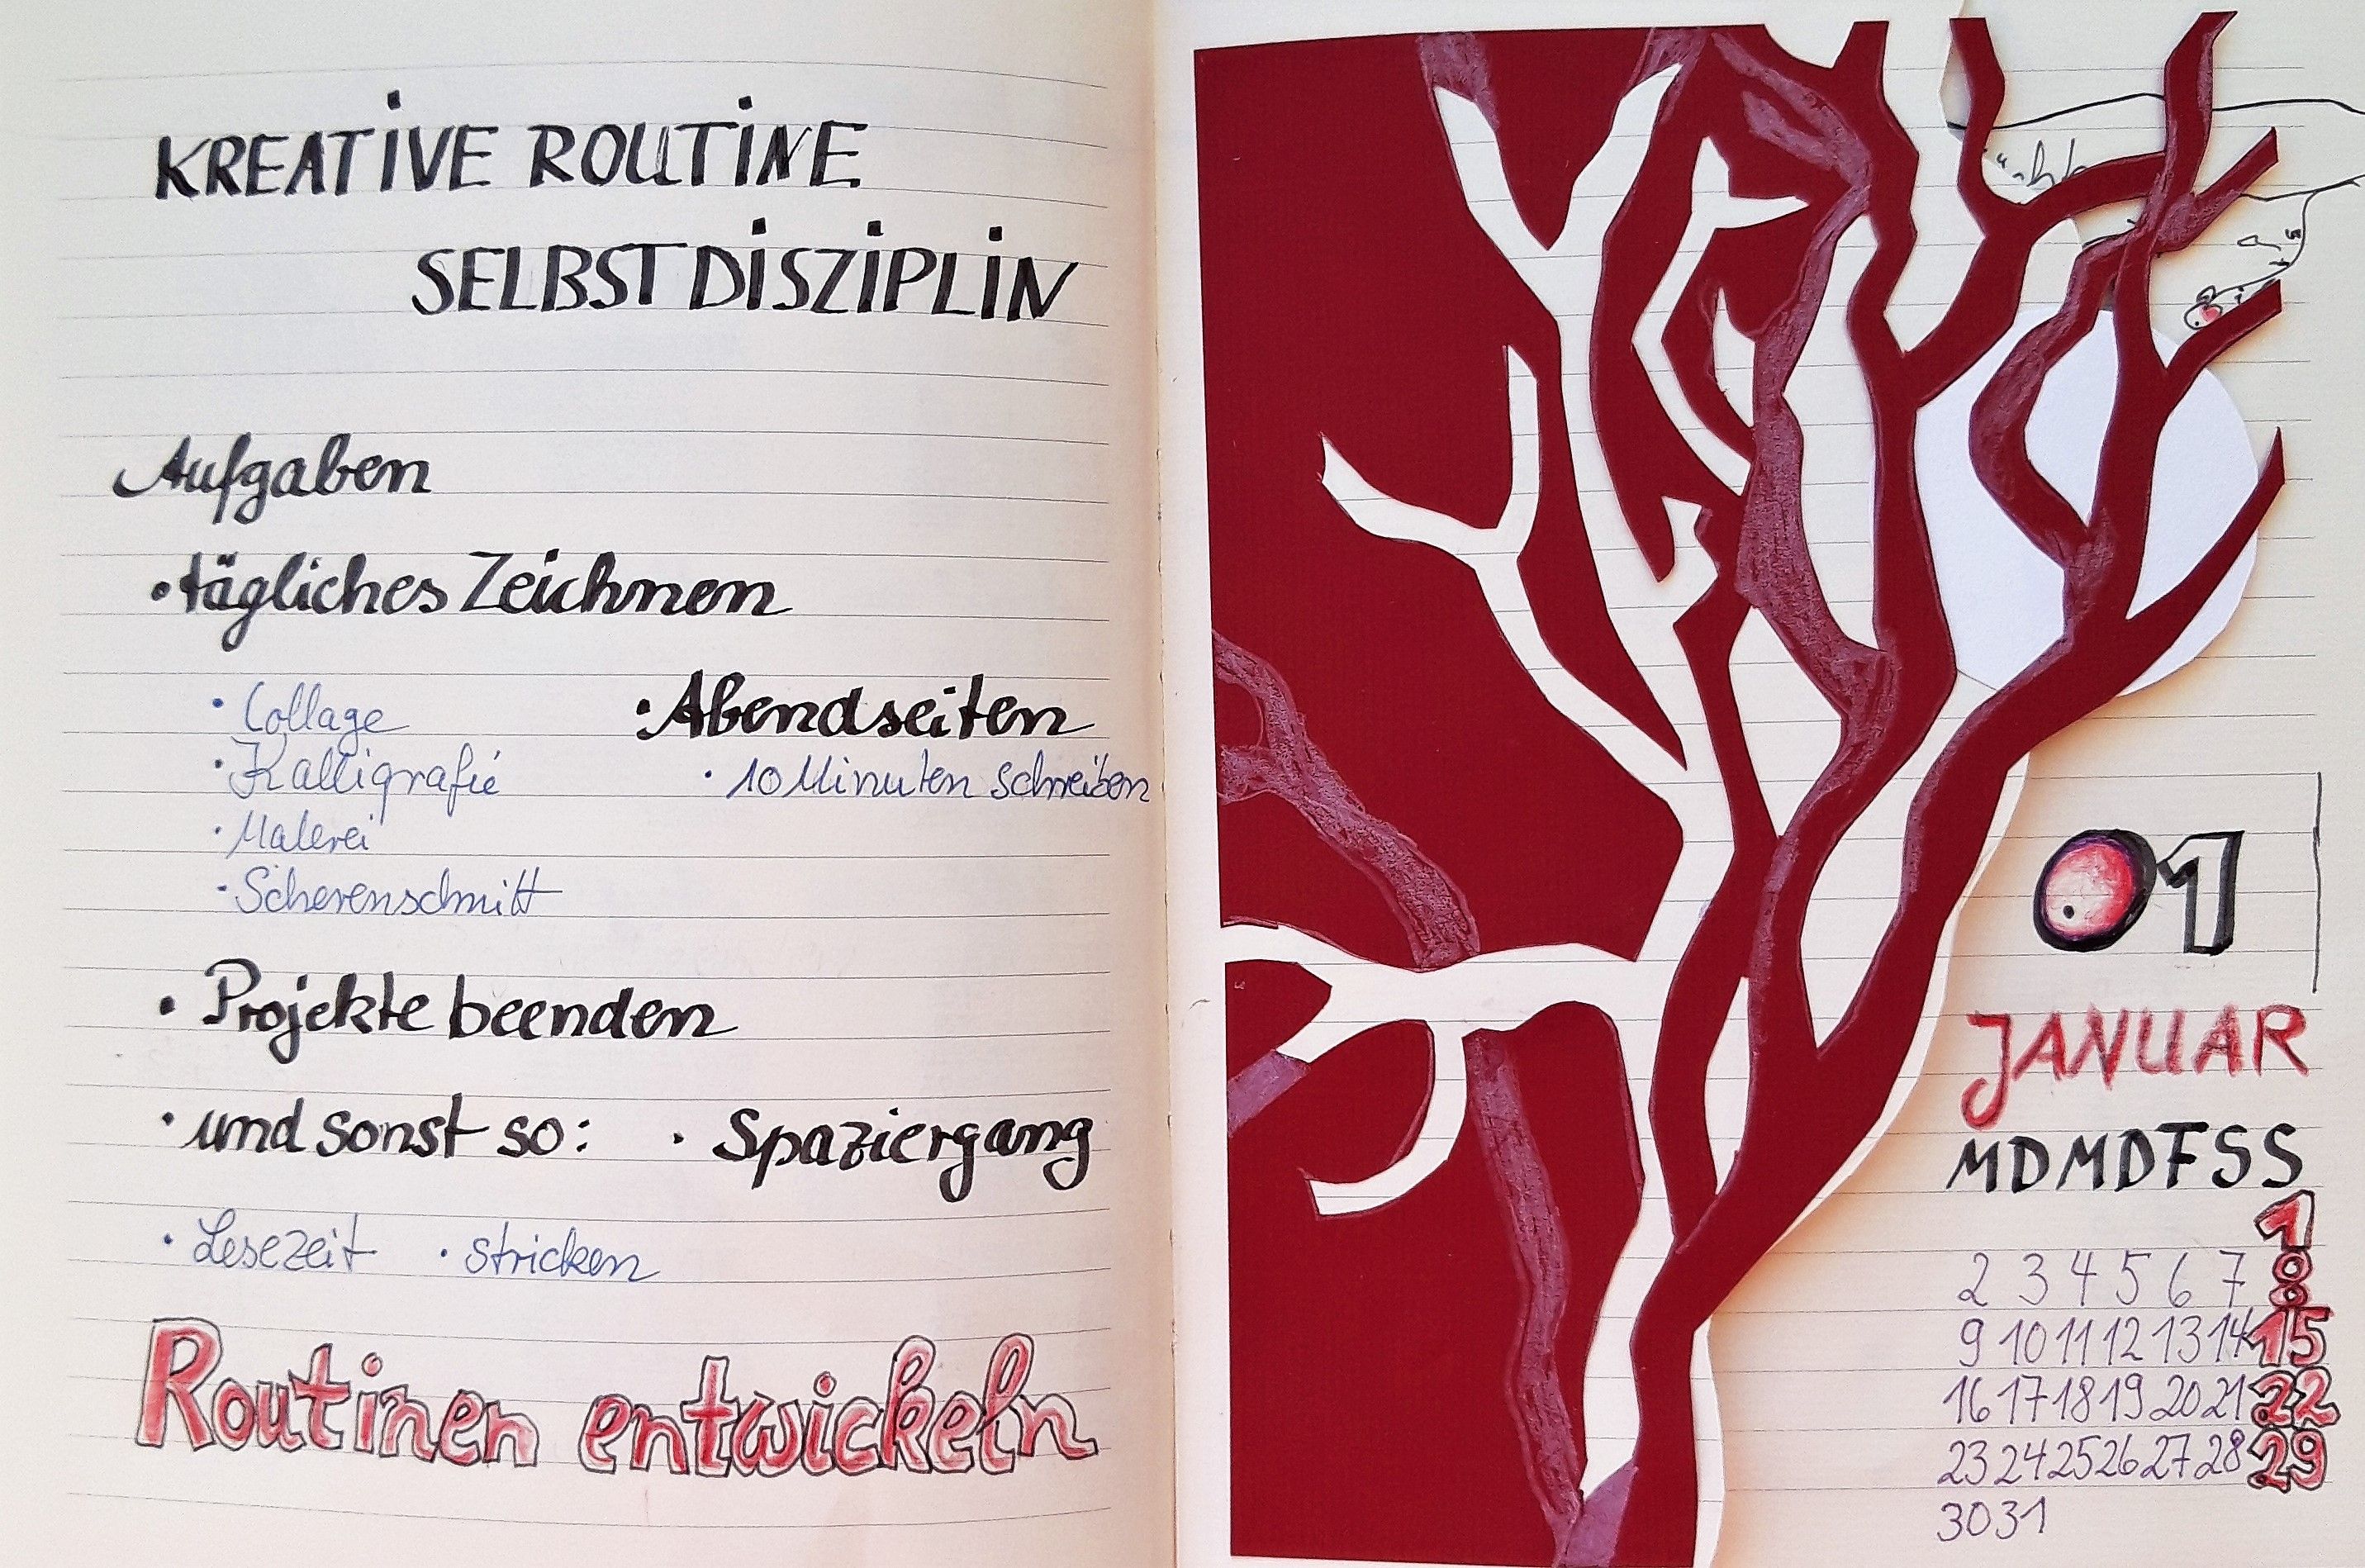 KREATIVE ROUTINE
SELBSTDISZIPLIN
Aufgaben
• tägliches Zeichnen
• Collage
• Kalligrafie
• Malerei
• Scherenschnitt
• Abendseiten
• 10 Minuten schreiben
• Projekte beenden
• und sonst so: • Spaziergang
• Lesezeit • stricken
Routinen entwickeln
01
JANUAR
MDMDFSS
1
2 3 4 5 6 7 8
9 10 11 12 13 14 15
16 17 18 19 20 21 22
23 24 25 26 27 28 29
30 31